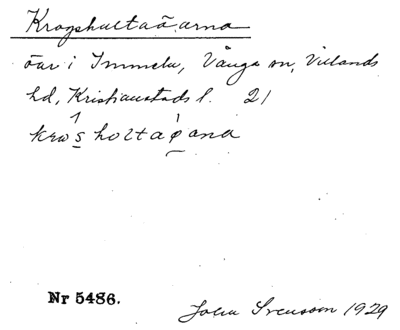 Krogshultaöarna
öar i Immeln, Vånga sn, Villands
hd, Kristianstads l. 21
krosholtaøana
Nr 5486.
John Svensson 1929